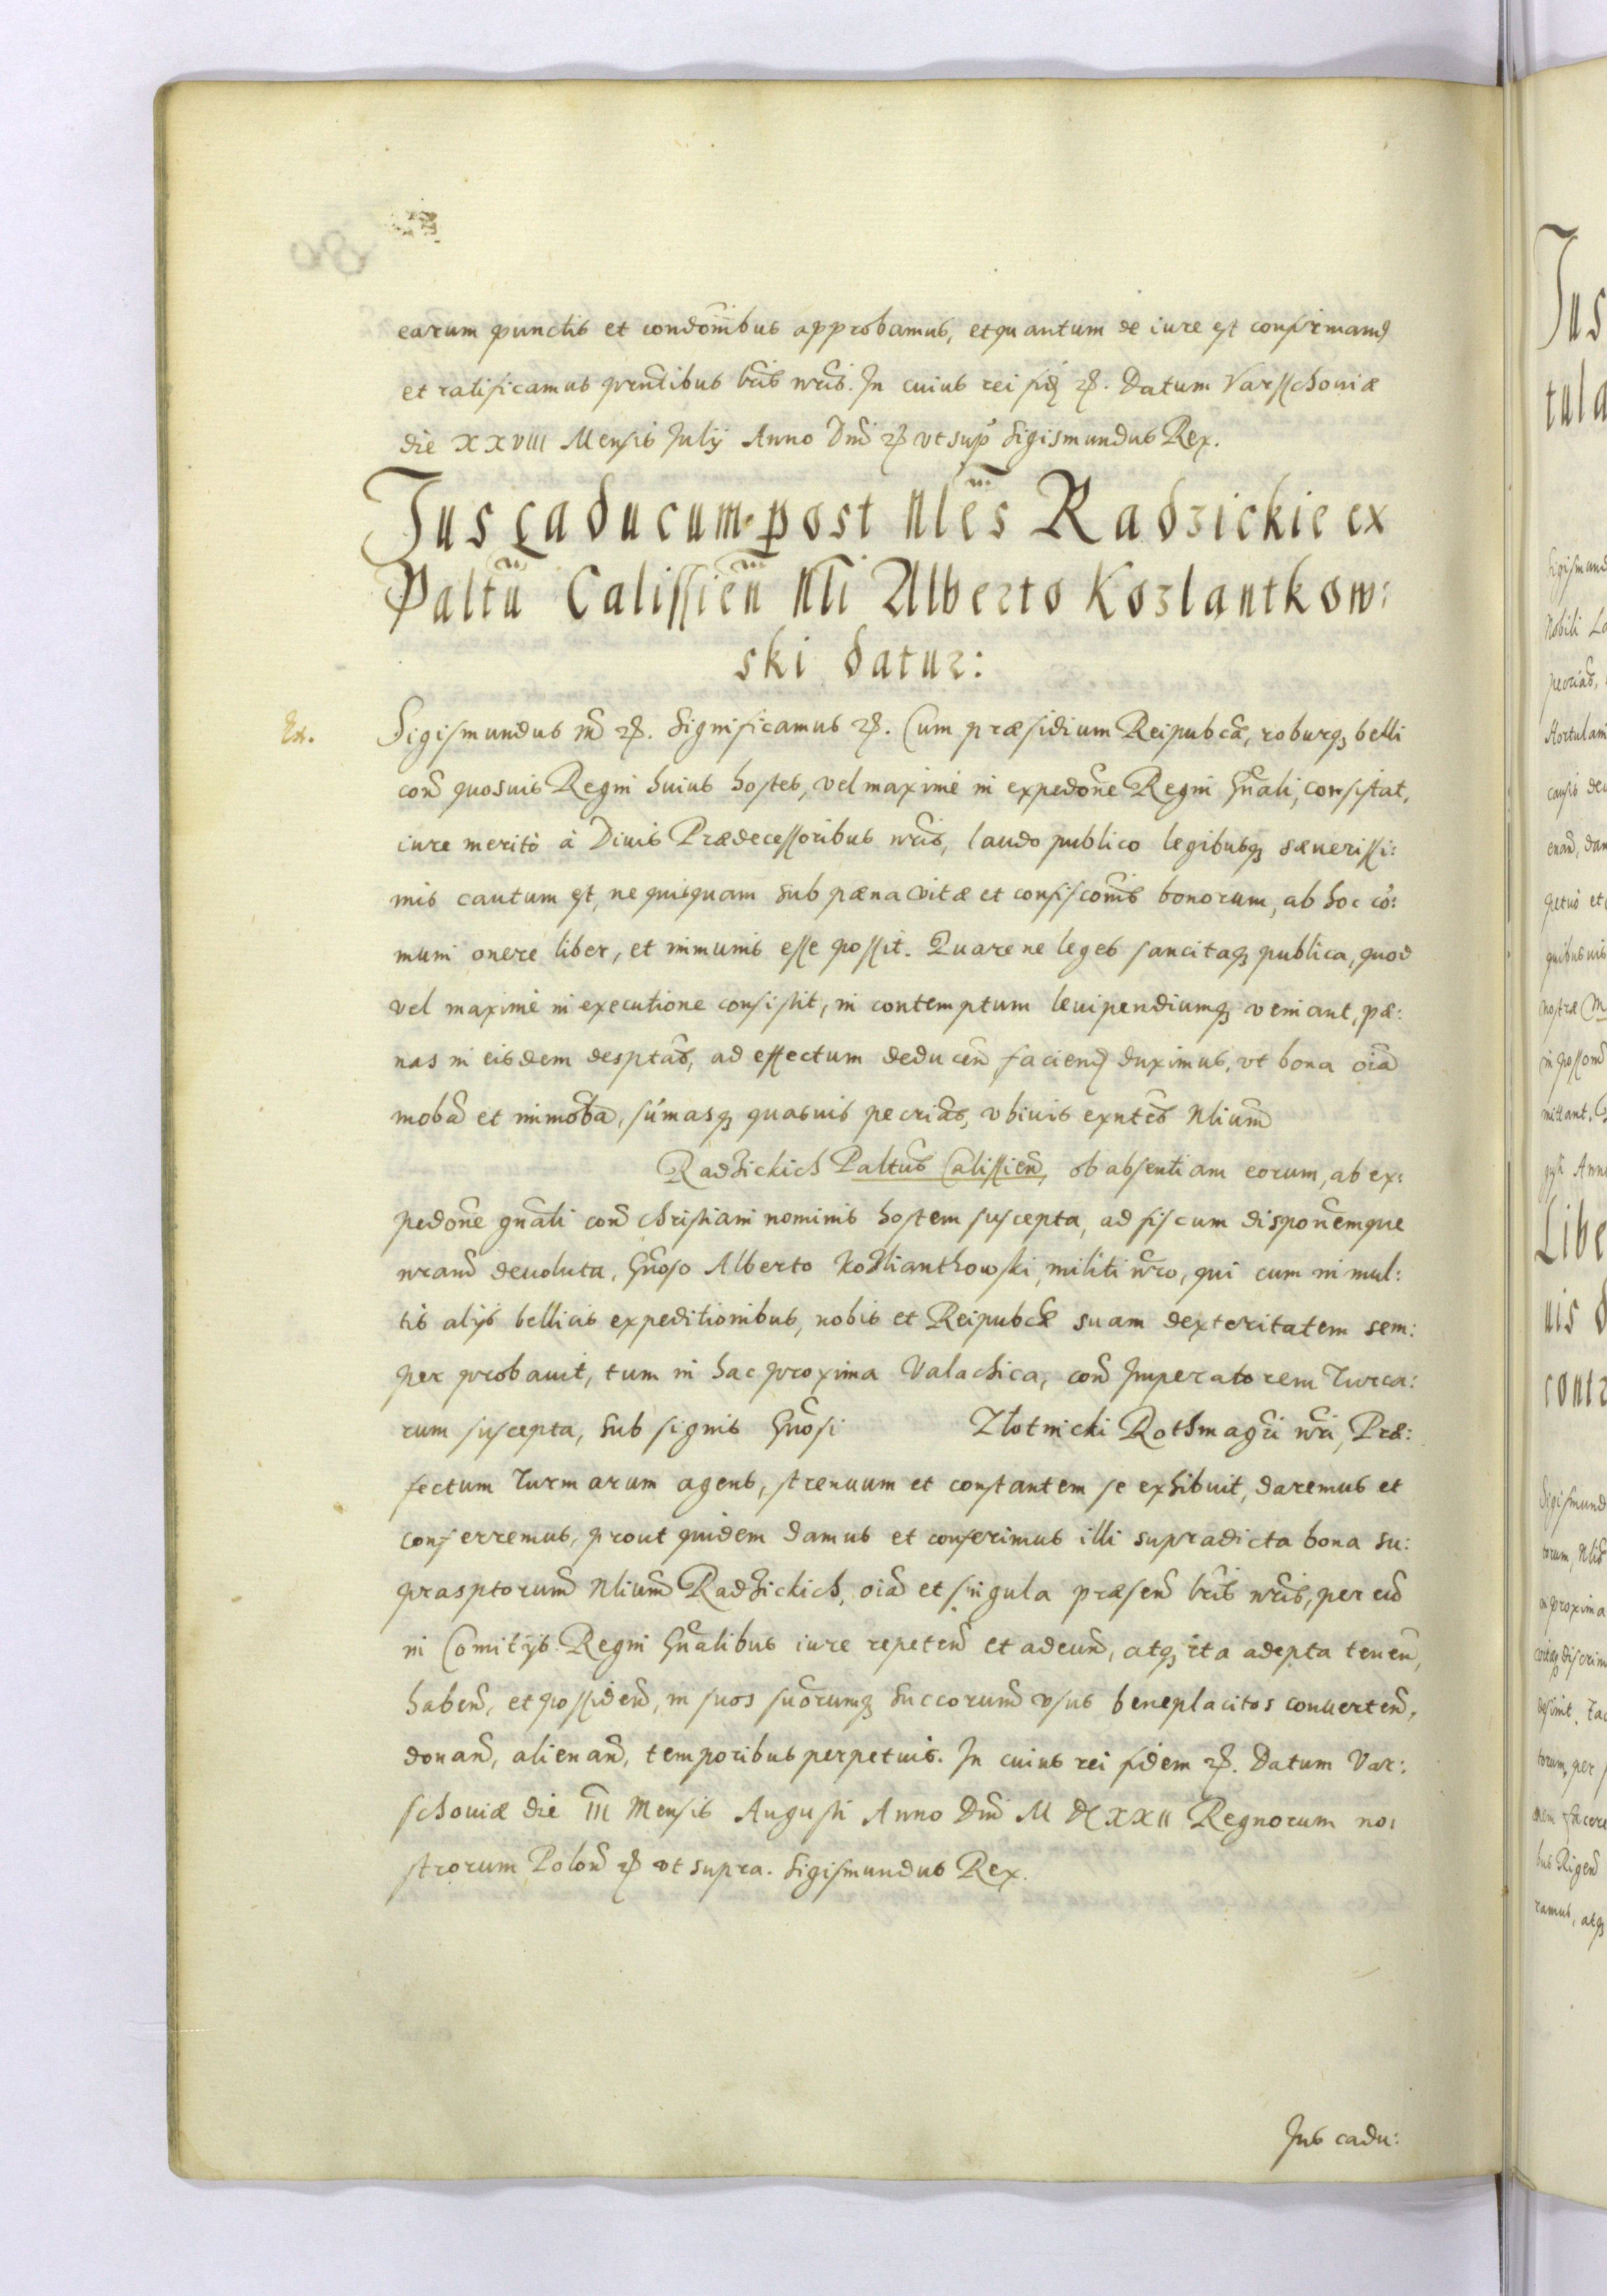 earum punctis et condonibus approbamus, et quantum de iure est confirmamq
et ratificamus prntibus lris nris. In cuius rei fid etc. Datum Varsschouiæ
die XXVIII Mensis Julij Anno Dni etc vt sup Sigismundus Rex.
Jus caducum post Nles Radzickie ex
Paltu Calissien Nli Alberto Kozlantkow:
ski datur:
Ex.
Sigismundus III etc. Significamus etc. Cum præsidium Reipubcæ, roburq belli
con quosuis Regni huius hostes, vel maximè in expedone Regni Gnali, consistat,
iure meritò à Diuis Prædecessoribus nris, laudo publico legibusq sæuerissi:
mis cautum est, ne quisquam sub pæna vitæ et confisconis bonorum, ab hoc co:
muni onere liber, et immunis esse possit. Quare ne leges sancitaq publica, quod
vel maximè in executione consistit, in contemptum leuipendiumq veniant, pæ:
nas in eisdem desptas, ad effectum deducen faciend duximus, vt bona oia
moba et immoba, sumasq quasuis pecrias, vbiuis exntes Nlium
Radzickich Paltus Calissien, ob absentiam eorum, ab ex:
pedone gnali con christiani nominis hostem suscepta, ad fiscum disponemque
nram deuoluta, Gnoso Alberto Kozlianthowski, militi nro, qui cum in mul:
tis alijs bellicis expeditionibus, nobis et Reipubcæ suam dexteritatem sem:
per probauit, tum in hac proxima Valachica, con Imperatorem Turca:
rum suscepta, sub signis Gnosi Zlotnicki Rothmagri nri, Præ:
fectum Turmarum agens, strenuum et constantem se exhibuit, daremus et
conferremus, prout quidem damus et conferimus illi supradicta bona su:
prasptorum Nlium Radzickich, oia et singula præsen lris nris, per eu
in Comitijs Regni Gnalibus iure repeten et adeun, atq ita adepta tenen,
haben, et possiden, in suos suorumq succorum vsus beneplacitos conuerten,
donan, alienan, temporibus perpetuis. In cuius rei fidem etc. Datum Var:
schouiæ die III Mensis Augusti Anno Dni M DCXXII Regnorum no:
strorum Polon etc vt supra. Sigismundus Rex.
Jus cadu: